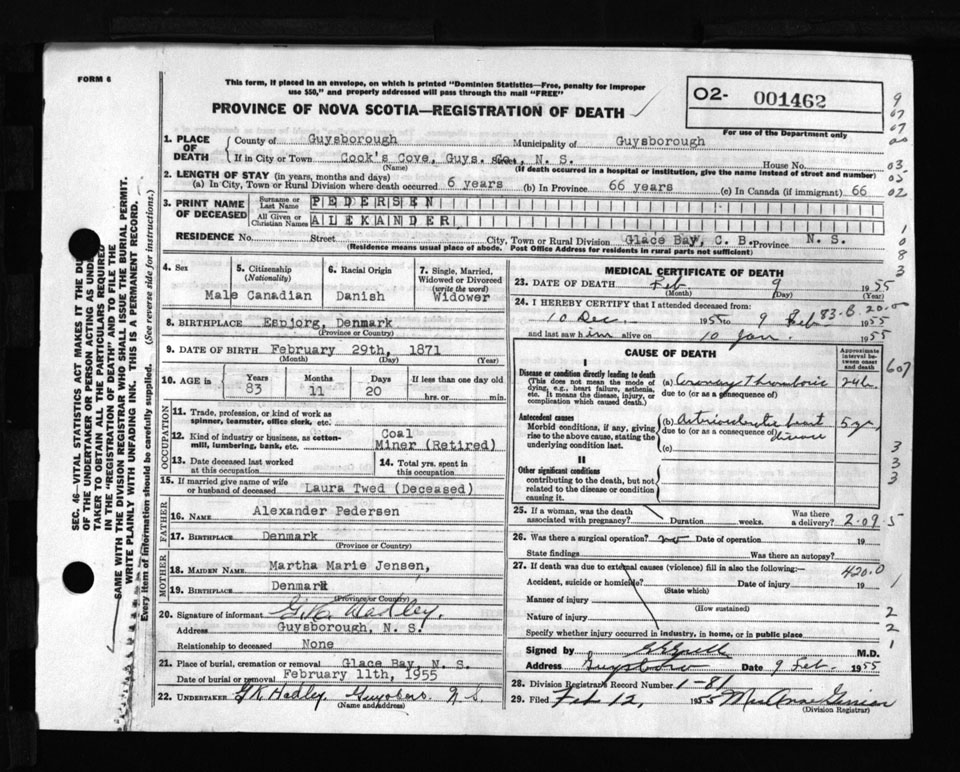 FORM 6
This form, if placed in an envelope, on which is printed "Dominion Statistics—Free, penalty for improper
use $50," and properly addressed will pass through the mail "FREE"
PROVINCE OF NOVA SCOTIA—REGISTRATION OF DEATH
O2- 001462
For use of the Department only
SEC. 46—VITAL STATISTICS ACT MAKES IT THE DU
OF THE UNDERTAKER OR PERSON ACTING AS UND
TAKER TO OBTAIN ALL THE PARTICULARS REQUIRED
IN THE "REGISTRATION OF DEATH" AND TO FILE THE
SAME WITH THE DIVISION REGISTRAR WHO SHALL ISSUE THE BURIAL PERMIT.
WRITE PLAINLY WITH UNFADING INK. THIS IS A PERMANENT RECORD.
Every item of information should be carefully supplied. (See reverse side for instructions.)
1. PLACE OF DEATH
County of Guysborough Municipality of Guysborough
If in City or Town Cook's Cove, Guys. Co., N. S. Street House No.
(Name) (If death occurred in a hospital or institution, give the name instead of street and number)
2. LENGTH OF STAY (in years, months and days)
(a) In City, Town or Rural Division where death occurred 6 years (b) In Province 66 years (c) In Canada (if immigrant) 66
3. PRINT NAME OF DECEASED
Surname or Last Name PEDERSEN
All Given or Christian Names ALEXANDER
RESIDENCE No. Street City, Town or Rural Division Glace Bay, C. B. Province N. S.
(Residence means usual place of abode. Post Office Address for residents in rural parts not sufficient)
4. Sex Male
5. Citizenship (Nationality) Canadian
6. Racial Origin Danish
7. Single, Married, Widowed or Divorced (write the word) Widower
8. BIRTHPLACE Esbjorg, Denmark
(Province or Country)
9. DATE OF BIRTH February 29th, 1871
(Month) (Day) (Year)
10. AGE in Years 83 Months 11 Days 20 If less than one day old
hrs. or min.
OCCUPATION
11. Trade, profession, or kind of work as
spinner, teamster, office clerk, etc.
12. Kind of industry or business, as cotton-
mill, lumbering, bank, etc. Coal
Miner (Retired)
13. Date deceased last worked
at this occupation
14. Total yrs. spent in
this occupation
15. If married give name of wife
or husband of deceased Laura Twed (Deceased)
FATHER
16. NAME Alexander Pedersen
17. BIRTHPLACE Denmark
(Province or Country)
MOTHER
18. MAIDEN NAME Martha Marie Jensen,
19. BIRTHPLACE Denmark
(Province or Country)
20. Signature of informant G.K. Hadley.
Address Guysborough, N. S.
Relationship to deceased None
21. Place of burial, cremation or removal Glace Bay, N. S.
Date of burial or removal February 11th, 1955
22. UNDERTAKER G.K. Hadley, Guysboro. N.S.
(Name and address)
MEDICAL CERTIFICATE OF DEATH
23. DATE OF DEATH Feb 9 1955
(Month) (Day) (Year)
83.8.20.0
24. I HEREBY CERTIFY that I attended deceased from:
10 Dec. 1955 to 9 Feb. 1955
and last saw him alive on 10 Jan. 1955
CAUSE OF DEATH
Approximate interval between onset and death
I
Disease or condition directly leading to death
(This does not mean the mode of
dying, e.g., heart failure, asthenia,
etc. It means the disease, injury, or
complication which caused death.)
(a) Coronary Thrombosis 24 h.
due to (or as a consequence of)
Antecedent causes
Morbid conditions, if any, giving
rise to the above cause, stating the
underlying condition last.
(b) Arteriosclerotic heart disease 5 yr
due to (or as a consequence of)
(c)
II
Other significant conditions
contributing to the death, but not
related to the disease or condition
causing it.
25. If a woman, was the death
associated with pregnancy? Duration weeks. Was there
a delivery? 2.09.5
26. Was there a surgical operation? no Date of operation 19
State findings Was there an autopsy?
27. If death was due to external causes (violence) fill in also the following:— 420.0
Accident, suicide or homicide? Date of injury 19
(State which)
Manner of injury
(How sustained)
Nature of injury
Specify whether injury occurred in industry, in home, or in public place
Signed by M.D.
Address Guysboro Date 9 Feb. 1955
28. Division Registrar's Record Number 1-81
29. Filed Feb 12, 1955
(Division Registrar)
9
07
07
03
03
02
1
0
8
3
607
3
3
3
1
2
2
1